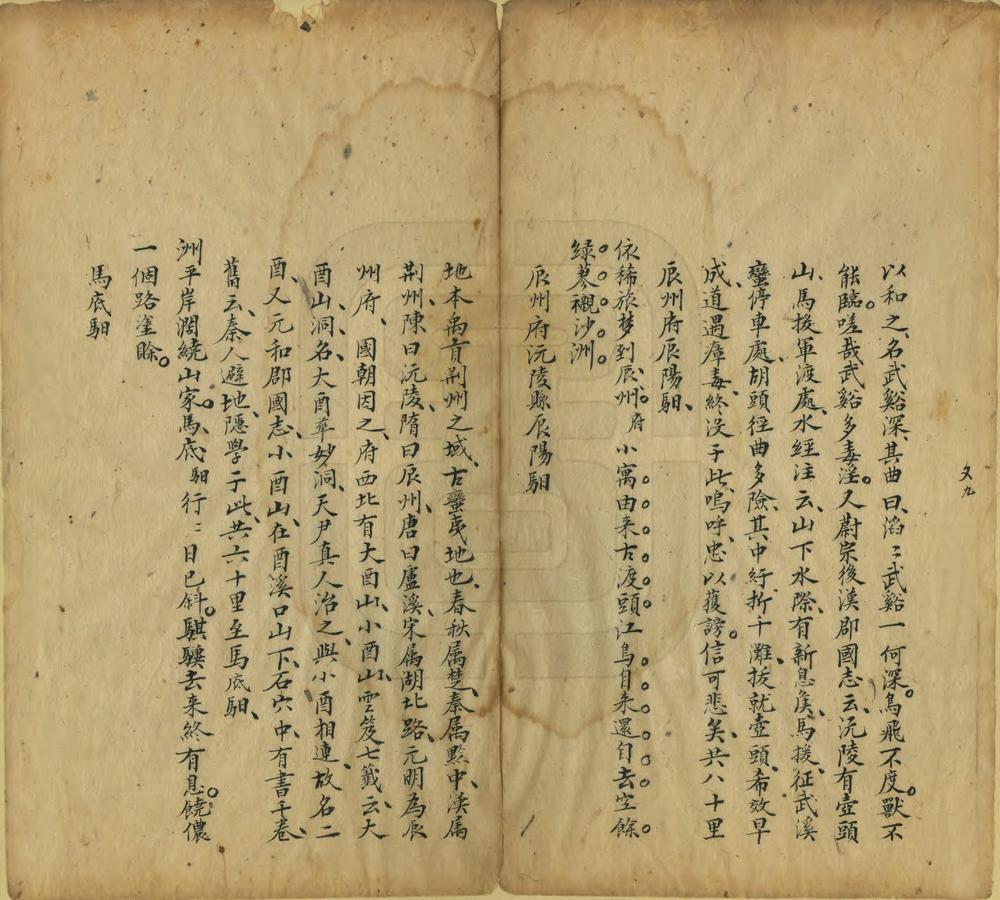 文九
以和之、名武谿深、其曲曰、滔〻武谿一何深。鳥飛不度。獸不
能臨。嗟哉武谿多毒淫。又蔚宗後漢郡國志云、沅陵有壺頭
山、馬援軍渡處、水經注云、山下水際、有新息侯、馬援、征武溪
蠻停車處、胡頭徑曲多險、其中紆折千灘、援就壺頭、希效早
成、道遇瘴毒、終没于此、嗚呼、忠以獲謗。信可悲矣、共八十里
辰州府辰陽馹、
辰州府沅陵縣辰陽馹
依稀旅梦到辰州府小寓由来古渡頭江鳥自来還自去空餘
綠蓼襯沙洲
地本禹貢荆州之域、古蠻夷地也、春秋属楚、秦属黔中、漢属
荆州、陳曰沅陵、隋曰辰州、唐曰盧溪、宋属湖北路、元明為辰
州府、國朝因之、府西北有大酉山、小酉山、雲笈七籤云、大
酉山、洞名大酉華妙洞、天尹真人治之、與小酉相連、故名二
酉、又元和郡國志、小酉山、在酉溪口山下、石穴中、有書千卷、
舊云、秦人避地、隱學于此、共六十里至馬底馹、
馬底馹行〻日已斜。騏驥去来終有息。饒儂
洲平岸濶繞山家。馬底
一個路塗賒。
馬底馹